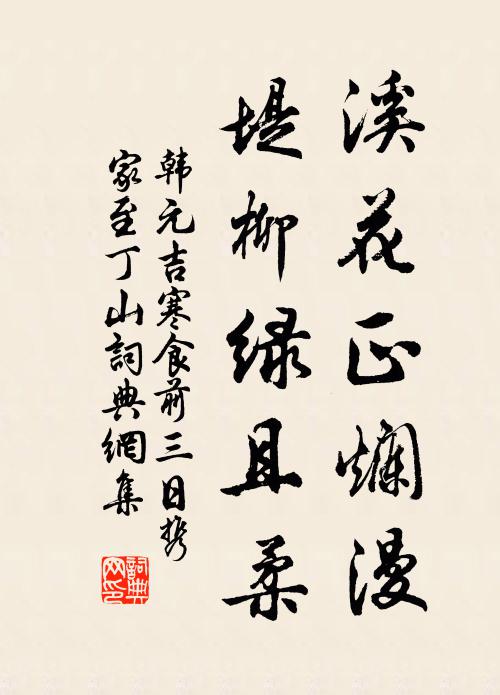 溪花正爛漫
堤柳绿且柔
韩元吉寒食前三日携
家至丁山詞典網集
詞典网印